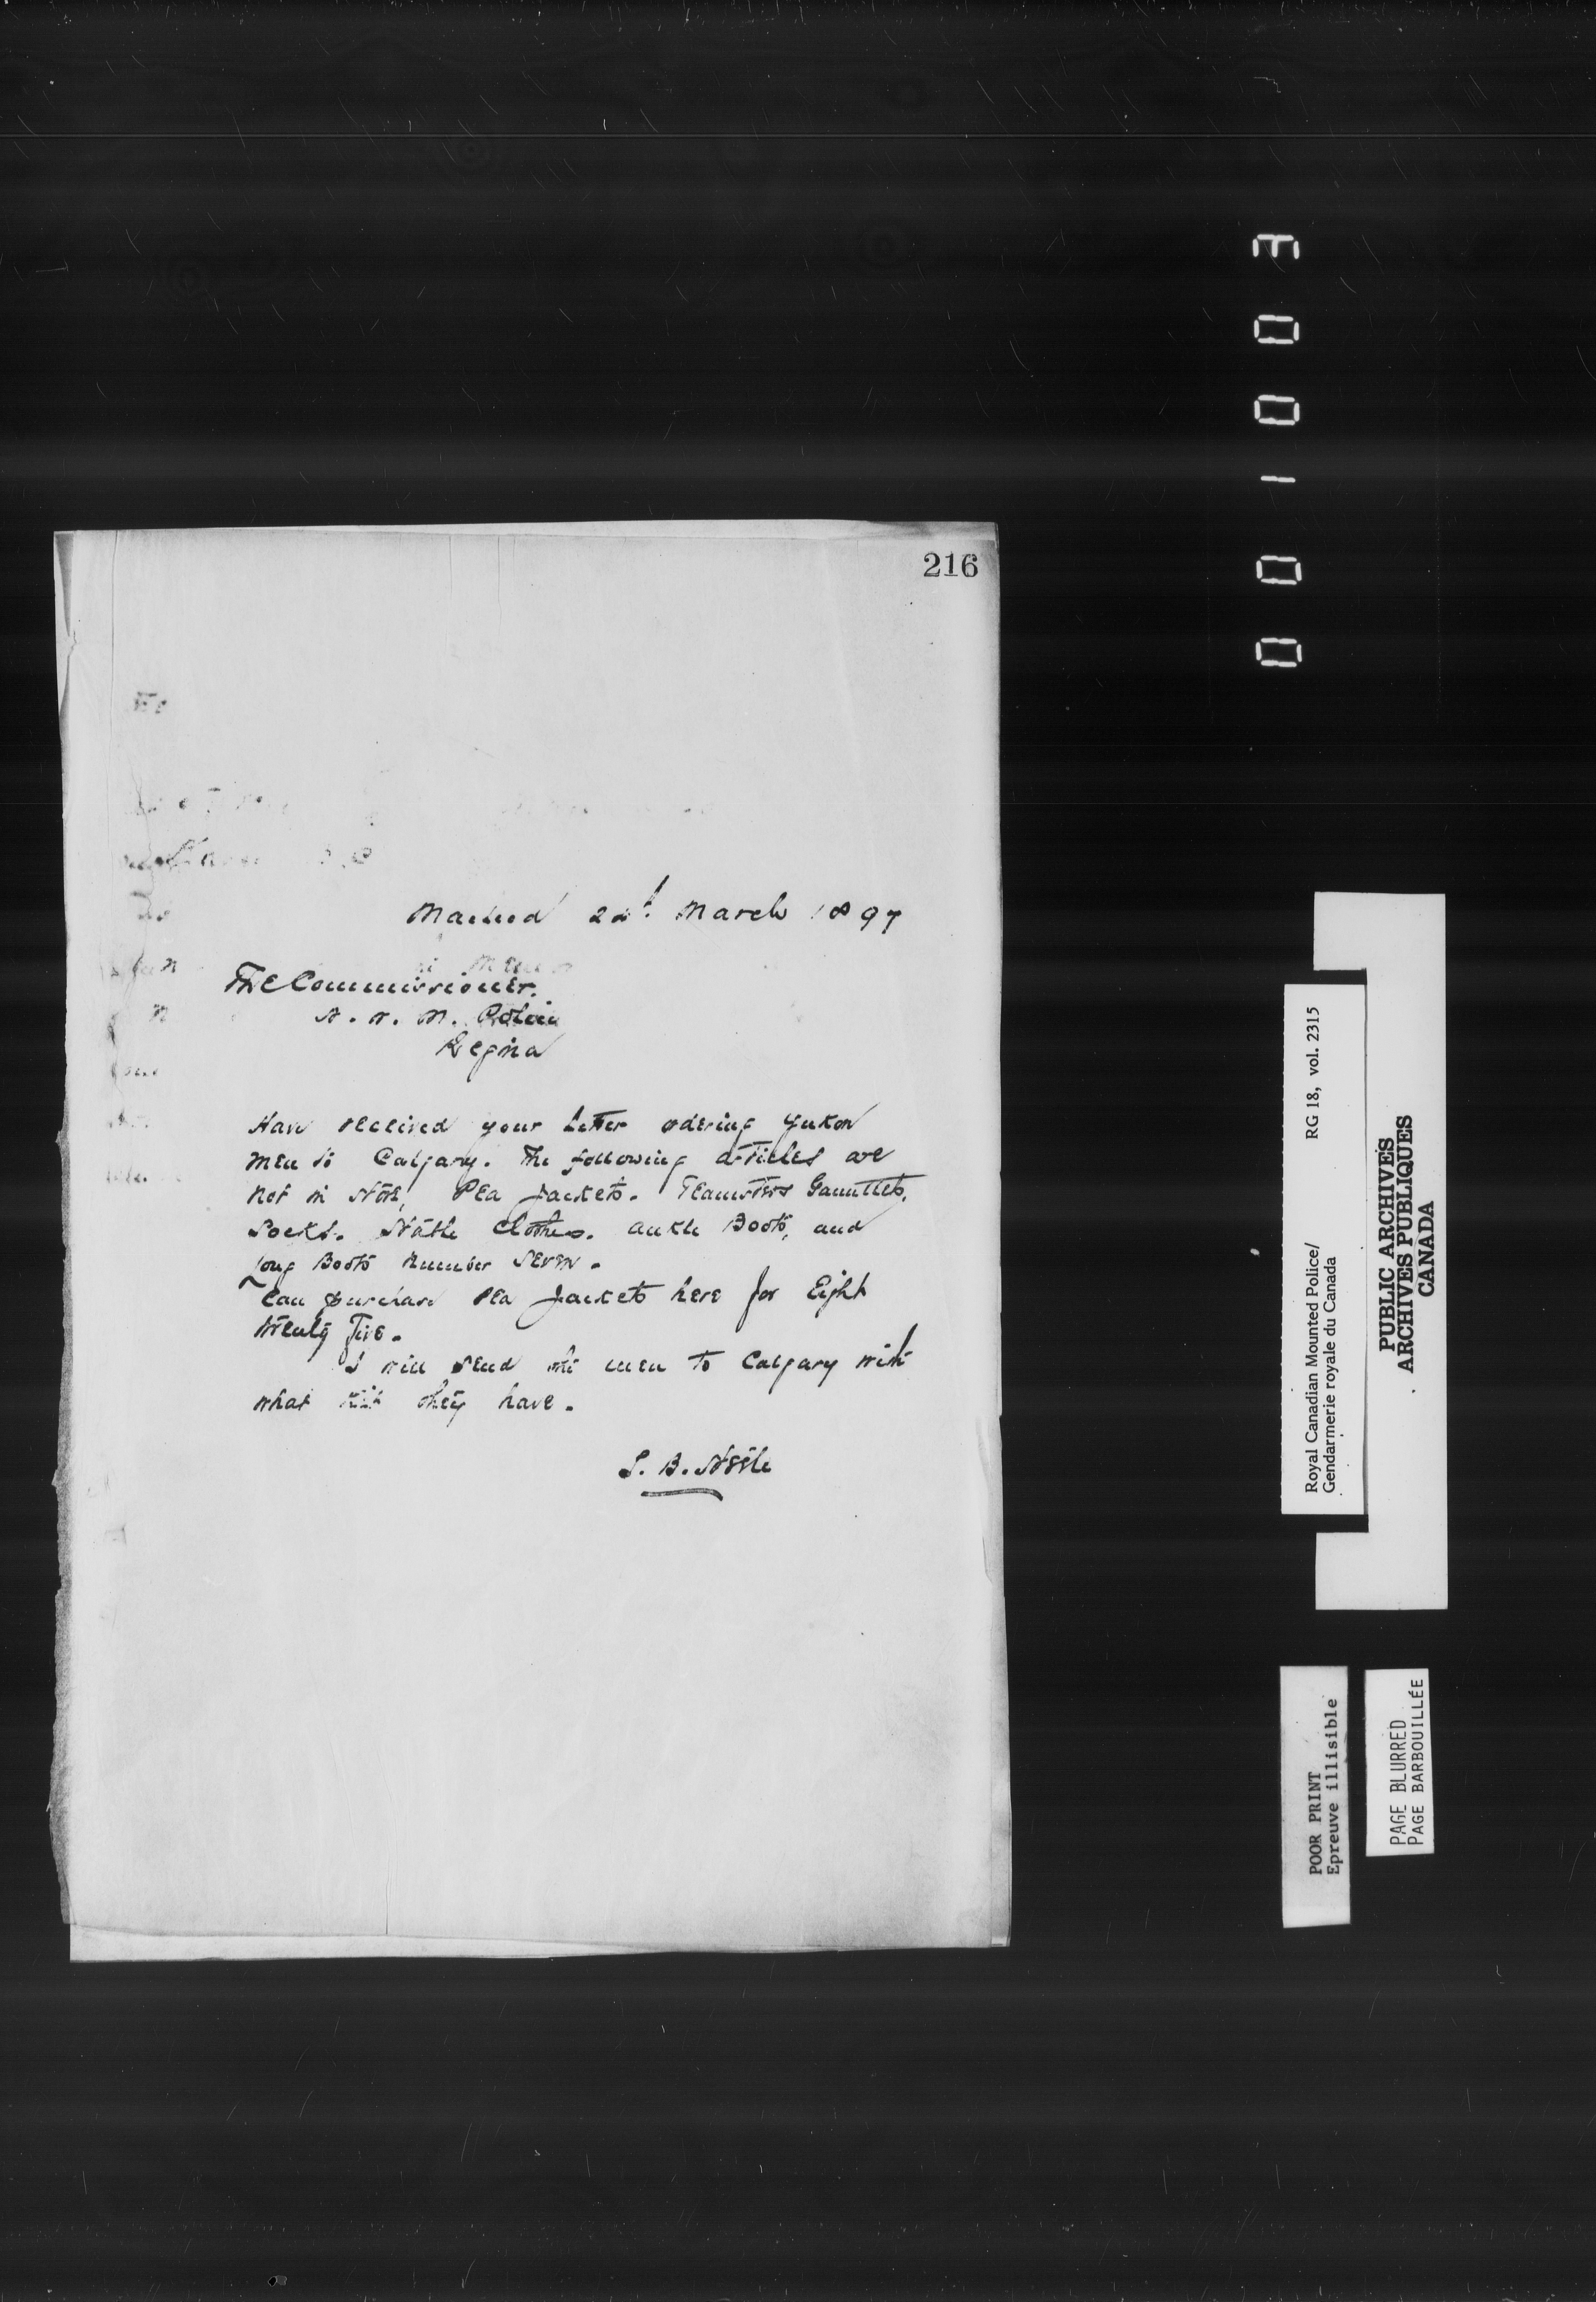 216
Macleod 22d. March 1897
The Commissioner.
N. W. M. Police
Regina
Have received your letter ordering Yukon
men to Calgary. The following articles are
not in Store, Pea Jackets. Teamsters Gauntlets,
Socks. Stable Clothes. Ankle Boots, and
Long Boots number seven.
Can purchase Pea Jackets here for Eight
twenty five.
I will send the men to Calgary with
what kit they have.
S. B. Steele
001003
Royal Canadian Mounted Police/ RG 18, vol. 2315
Gendarmerie royale du Canada
PUBLIC ARCHIVES
ARCHIVES PUBLIQUES
CANADA
POOR PRINT
Epreuve illisible
PAGE BLURRED
PAGE BARBOUILLÉE